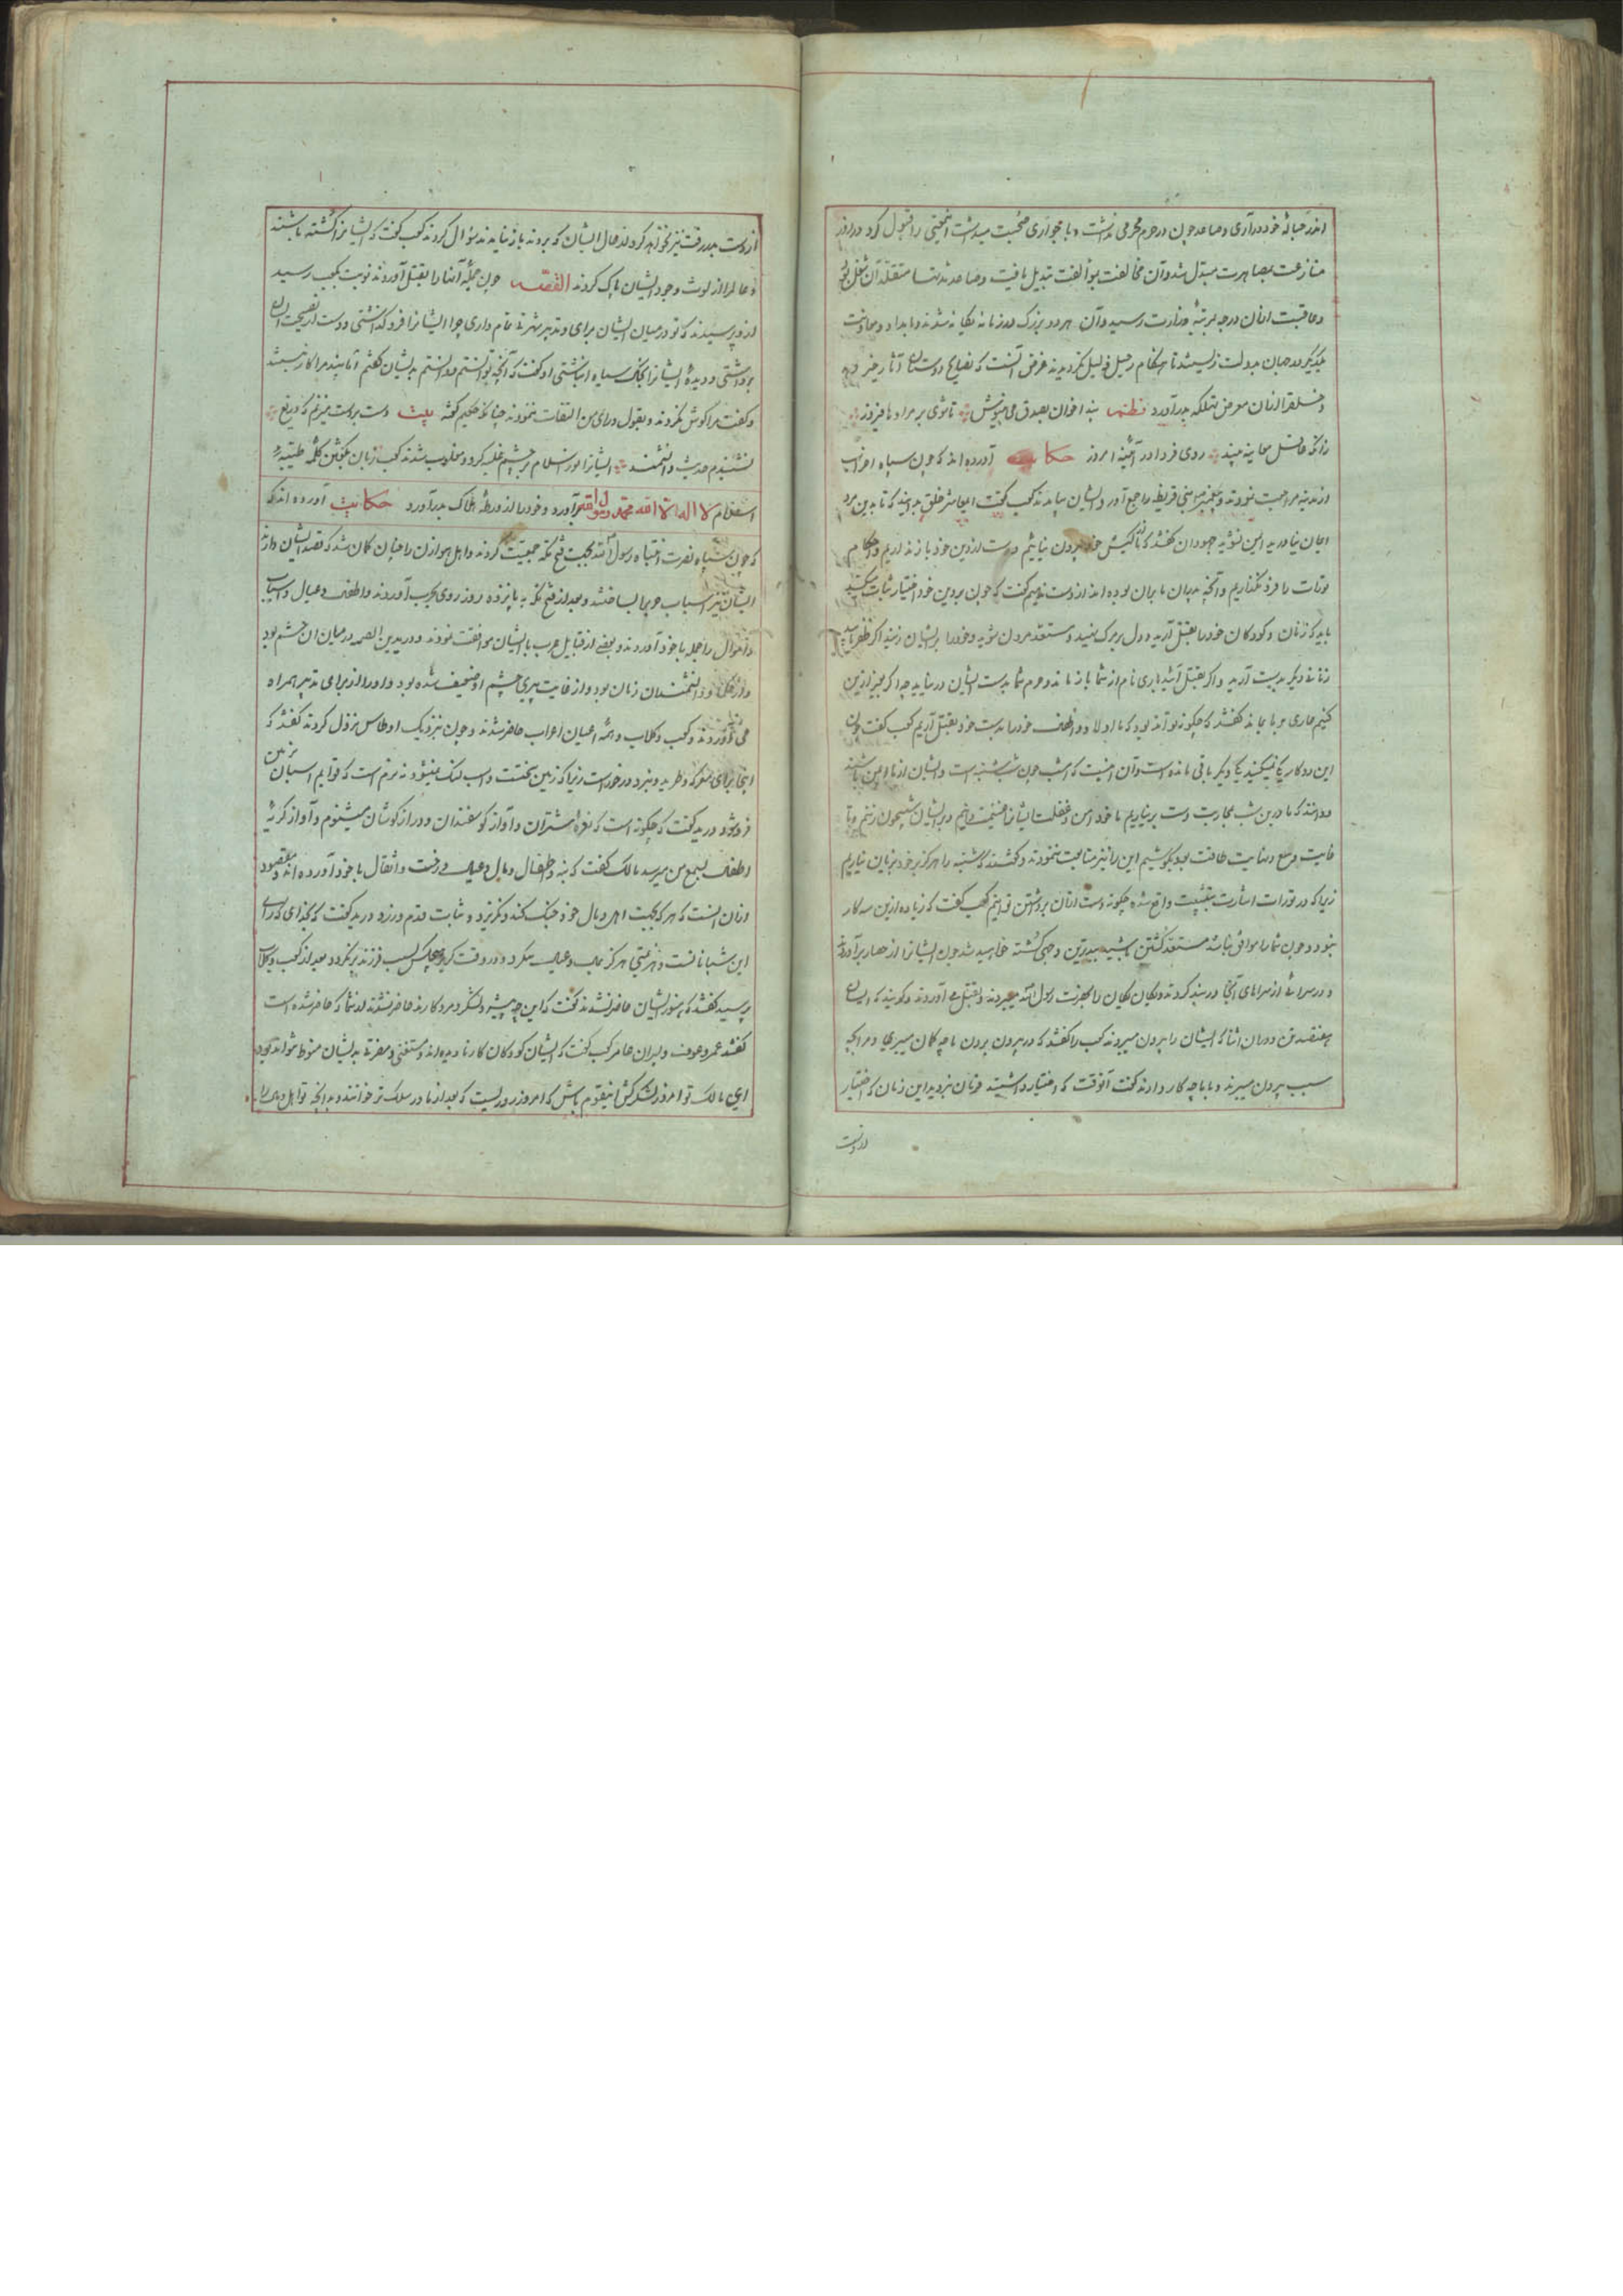 اندر حباله خود در آری و صاعد چون در حرم محرمی نداشت و با جواری صحبت میداشت را قبول کرد و در آنروز
منازعت بمصاهرت مبدل شد و آن مخالفت بموالفت تبدیل یافت و صاعد متقلد آن شغل
و عاقبت از آن درجه بمرتبه وزارت رسید و آن هر دو بزرگ در زمانه یگانه شدند و بامداد و معاونت
یکدیگر در جهان بدولت زیستند تا هنگام رحیل غرض آنست که نصایح دوستان آثار خیر دهد
و خلق را از آن معرض تهلکه بدر آورد نظم پند اخوان بصدق می نیوش تا شوی بر مراد ها فیروز
زانکه عاقل معاینه بیند روی فردا در آئینه امروز حکایت آورده اند که چون سپاه احزاب
از مدینه مراجعت نمودند و پیغمبر بنی قریظه را ایشان بیامدند کعب گفت ای معاشر خلق بدانید که تا بدین مرد
ایمان نیاورید ایمن نشوید جهودان گفتند که ما از کیش خود بیرون نیائیم و دست از دین خود باز نداریم و احکام
تورات را فرو نگذاریم و آنچه پدران ما بران بوده اند از دست ندهیم گفت که چون بر دین خود اختیار ثبات میکنید
باید که زنان و کودکان خود را بقتل آرید و دل بر مرگ بنهید و مستعد مردن شوید و خود را بر ایشان زنید اگر ظفر یابید
زنان دیگر بدست آرید و اگر بقتل آئید باری نام از شما باز ماند و حرم شما بدست ایشان در نیاید چه اگر بجز ازین
کنیم عاری بر ما بماند گفتند که چگونه تواند بود که ما اولاد و اطفال خود را بدست خود بقتل آریم کعب گفت چون
این دو کار یکی نمیکنید یکی دیگر باقی مانده است و آن اینست که امشب چون شب شنبه است و ایشان از ما ایمن باشند
و دانند که ما درین شب بمحاربت دست بر نیاریم ما خود امن و غفلت ایشان غنیمت دانیم و بر ایشان شبیخون زنیم و تا
غایت وسع و نهایت طاقت خود بکوشیم این را نیز متابعت ننمودند و گفتند که شنبه را هرگز بر خود بزیان نیاریم
زیرا که در تورات اشارت واقع شده چگونه دست از آن برداشتن توانیم کعب گفت که زیاده ازین سه کار
نبود و چون شما را موافق نباشد مستعد کشتن باشید و چون ایشانرا از حصار بر آوردند
و در سرائی از سراهای آنجا در بند کردند و یگان یگان را بحضرت رسول الله میبردند و بقتل می آوردند
در آن اثنا که ایشان را بیرون میبردند کعب را گفتند که در بیرون بردن ما چه گمان میبری و ما را بچه
سبب بیرون میبرند و با ما چه کار دارند گفت آنوقت که اختیار داشتید فرمان نبردید این زمان که اختیار
از دست
از دست بدر رفت نیز نخواهید کرد از حال ایشان که بردند باز نیامدند سوال کردند کعب گفت که ایشانرا کشته باشند
و عالم را از لوث وجود ایشان پاک کردند القصه چون جمله آنها را بقتل آوردند نوبت بکعب رسید
از و پرسیدند که تو در میان ایشان برای و تدبیر شهرت تمام داری چرا ایشانرا فرو گذاشتی و دست از نصیحت ایشان
برداشتی و دیده ایشانرا بخاک سیاه انباشتی او گفت که آنچه توانستم و دانستم بدیشان گفتم اما پند مرا کار نبستند
و گفت مرا گوش نکردند و بقول و رای من التفات ننمودند چنانکه حکیم گفته بیت دست بر دست میزنم که دریغ
نشنیدم حدیث دانشمند ایشانرا نور اسلام بر چشم غلبه کرد و مغلوب شدند کعب زبان بگفتن کلمه طیبه
اسلام لا اله الا الله محمد رسول الله بر آورد و خود را از ورطه هلاک بدر آورد حکایت آورده اند که
که چون سپاه نصرت انتباه رسول الله بجهت فتح مکه جمعیت کردند و اهل هوازن را چنان گمان شد که قصد ایشان دارند
ایشان نیز اسباب حرب را بساختند و بعد از فتح مکه به پانزده روز روی بحرب آوردند و اطفال و عیال و اسباب
و اموال را جمله با خود آوردند و بعضی از قبایل عرب با ایشان موافقت نمودند و درید بن الصمه در میان ان حشم بود
و از عقلا و دانشمندان زمان بود و از غایت پیری چشم او ضعیف شده بود و او را از برای تدبیر همراه
می آوردند و کعب و کلاب و ائمه اعیان اعراب حاضر شدند و چون بنزدیک اوطاس نزول کردند گفتند که
اینجا برای معرکه و طرید و نبرد در خور است زیرا که زمین سخت است و اسب لنگ نمیشود نه نرم است که قوایم اسبان بزمین
فرو شود درید گفت که چگونه است که نعره اشتران و آواز گوسفندان و دراز گوشان میشنوم و آواز گریه
اطفال بسمع من میرسد مالک گفت که بنه و اطفال و مال و عیال و رخت و اثقال با خود آورده اند و مقصود
از آن آنست که هر کس بجهت اهل و مال خود جنگ کند و نگریزد و ثابت قدم ورزد درید گفت که بخدای که رای
این شبانان است و هزیمتی هرگز بمال و عیال ننگرد و در وقت گریز هیچکس بسبب فرزند بر نگردد و بعد از کعب و کلاب
پرسید گفتند که هنوز ایشان حاضر نشدند گفت که این چه لشکر و مرد کارند حاضر نشدند از شما که حاضر شده است
گفتند عمر و عوف و پسران عامر کعب گفت که ایشان کودکان کار نادیده اند و منفعتی و مضرتی بدیشان منوط نتواند بود
ای مالک تو امروز لشکر کش این قوم باش که امروز روزیست که بعد از ما در سلوک تو خوانند و بدانچه تو اهل و مال را